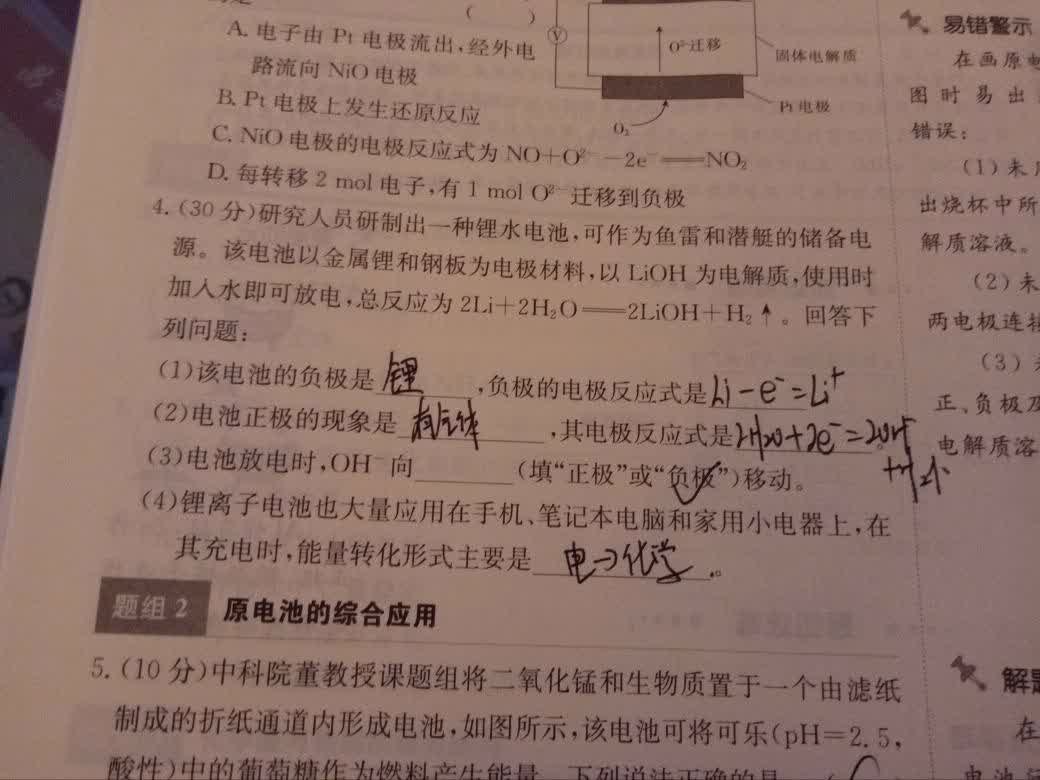 (　　)
A. 电子由 Pt 电极流出,经外电
路流向 NiO 电极
B. Pt 电极上发生还原反应
C. NiO 电极的电极反应式为 NO+O²⁻−2e⁻══NO₂
D. 每转移 2 mol 电子,有 1 mol O²⁻ 迁移到负极
V
O²⁻迁移
固体电解质
Pt 电极
O₂
4. (30 分)研究人员研制出一种锂水电池,可作为鱼雷和潜艇的储备电
源。该电池以金属锂和钢板为电极材料,以 LiOH 为电解质,使用时
加入水即可放电,总反应为 2Li+2H₂O══2LiOH+H₂↑。回答下
列问题:
(1)该电池的负极是 锂 ,负极的电极反应式是 Li−e⁻=Li⁺
(2)电池正极的现象是 有气体 ,其电极反应式是 2H₂O+2e⁻=2OH⁻
+H₂↑
(3)电池放电时,OH⁻向______(填“正极”或“负极”)移动。
(4)锂离子电池也大量应用在手机、笔记本电脑和家用小电器上,在
其充电时,能量转化形式主要是 电→化学 。
题组 2 原电池的综合应用
5. (10 分)中科院董教授课题组将二氧化锰和生物质置于一个由滤纸
制成的折纸通道内形成电池,如图所示,该电池可将可乐(pH=2.5,
酸性)中的葡萄糖作为燃料产生能量。下列说法正确的是 (
易错警示
在画原电
图 时 易 出
错误:
(1)未
出烧杯中所
解质溶液。
(2)未
两电极连接
(3)
正、负极及
电解质溶
解题
在
电池